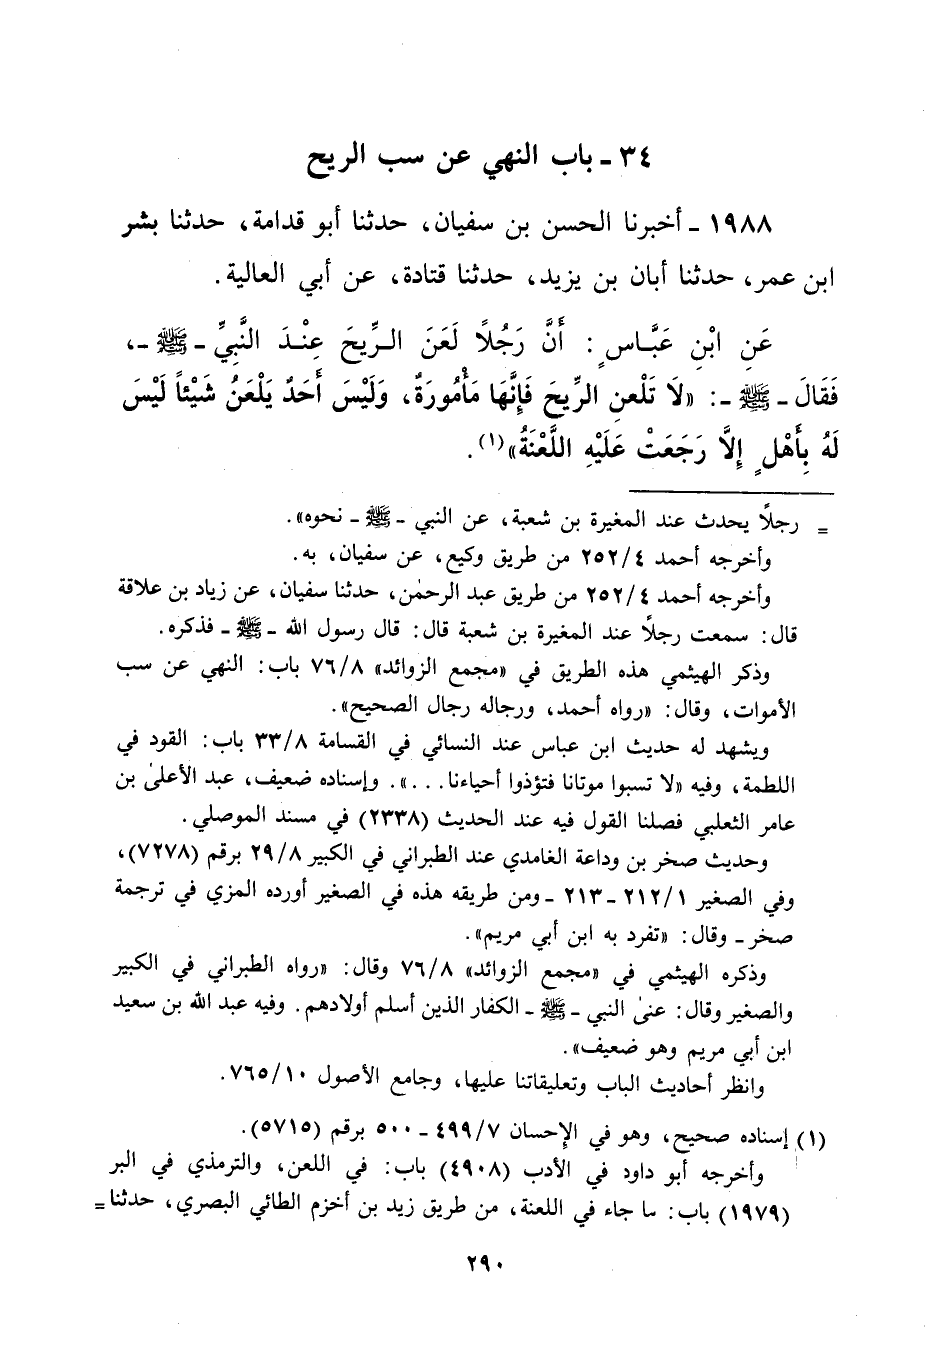 ٣٤ ـ باب النهي عن سب الريح
١٩٨٨ ـ أخبرنا الحسن بن سفيان، حدثنا أبو قدامة، حدثنا بشر
ابن عمر، حدثنا أبان بن يزيد، حدثنا قتادة، عن أبي العالية.
عَنِ ابْنِ عَبَّاسٍ: أَنَّ رَجُلًا لَعَنَ الرِّيحَ عِنْدَ النَّبِيِّ ـ ﷺ ـ،
فَقَالَ ـ ﷺ ـ: «لَا تَلْعَنِ الرِّيحَ فَإِنَّهَا مَأْمُورَةٌ، وَلَيْسَ أَحَدٌ يَلْعَنُ شَيْئاً لَيْسَ
لَهُ بِأَهْلٍ إِلَّا رَجَعَتْ عَلَيْهِ اللَّعْنَةُ»(١).
= رجلًا يحدث عند المغيرة بن شعبة، عن النبي ـ ﷺ ـ نحوه».
وأخرجه أحمد ٢٥٢/٤ من طريق وكيع، عن سفيان، به.
وأخرجه أحمد ٢٥٢/٤ من طريق عبد الرحمٰن، حدثنا سفيان، عن زياد بن علاقة
قال: سمعت رجلًا عند المغيرة بن شعبة قال: قال رسول الله ـ ﷺ ـ فذكره.
وذكر الهيثمي هذه الطريق في «مجمع الزوائد» ٧٦/٨ باب: النهي عن سب
الأموات، وقال: «رواه أحمد، ورجاله رجال الصحيح».
ويشهد له حديث ابن عباس عند النسائي في القسامة ٣٣/٨ باب: القود في
اللطمة، وفيه «لا تسبوا موتانا فتؤذوا أحياءنا...». وإسناده ضعيف، عبد الأعلىٰ بن
عامر الثعلبي فصلنا القول فيه عند الحديث (٢٣٣٨) في مسند الموصلي.
وحديث صخر بن وداعة الغامدي عند الطبراني في الكبير ٢٩/٨ برقم (٧٢٧٨)،
وفي الصغير ٢١٢/١ ـ ٢١٣ ـ ومن طريقه هذه في الصغير أورده المزي في ترجمة
صخر ـ وقال: «تفرد به ابن أبي مريم».
وذكره الهيثمي في «مجمع الزوائد» ٧٦/٨ وقال: «رواه الطبراني في الكبير
والصغير وقال: عنىٰ النبي ـ ﷺ ـ الكفار الذين أسلم أولادهم. وفيه عبد الله بن سعيد
ابن أبي مريم وهو ضعيف».
وانظر أحاديث الباب وتعليقاتنا عليها، وجامع الأصول ٧٦٥/١٠.
(١) إسناده صحيح، وهو في الإحسان ٤٩٩/٧ ـ ٥٠٠ برقم (٥٧١٥).
وأخرجه أبو داود في الأدب (٤٩٠٨) باب: في اللعن، والترمذي في البر
(١٩٧٩) باب: ما جاء في اللعنة، من طريق زيد بن أخزم الطائي البصري، حدثنا =
٢٩٠